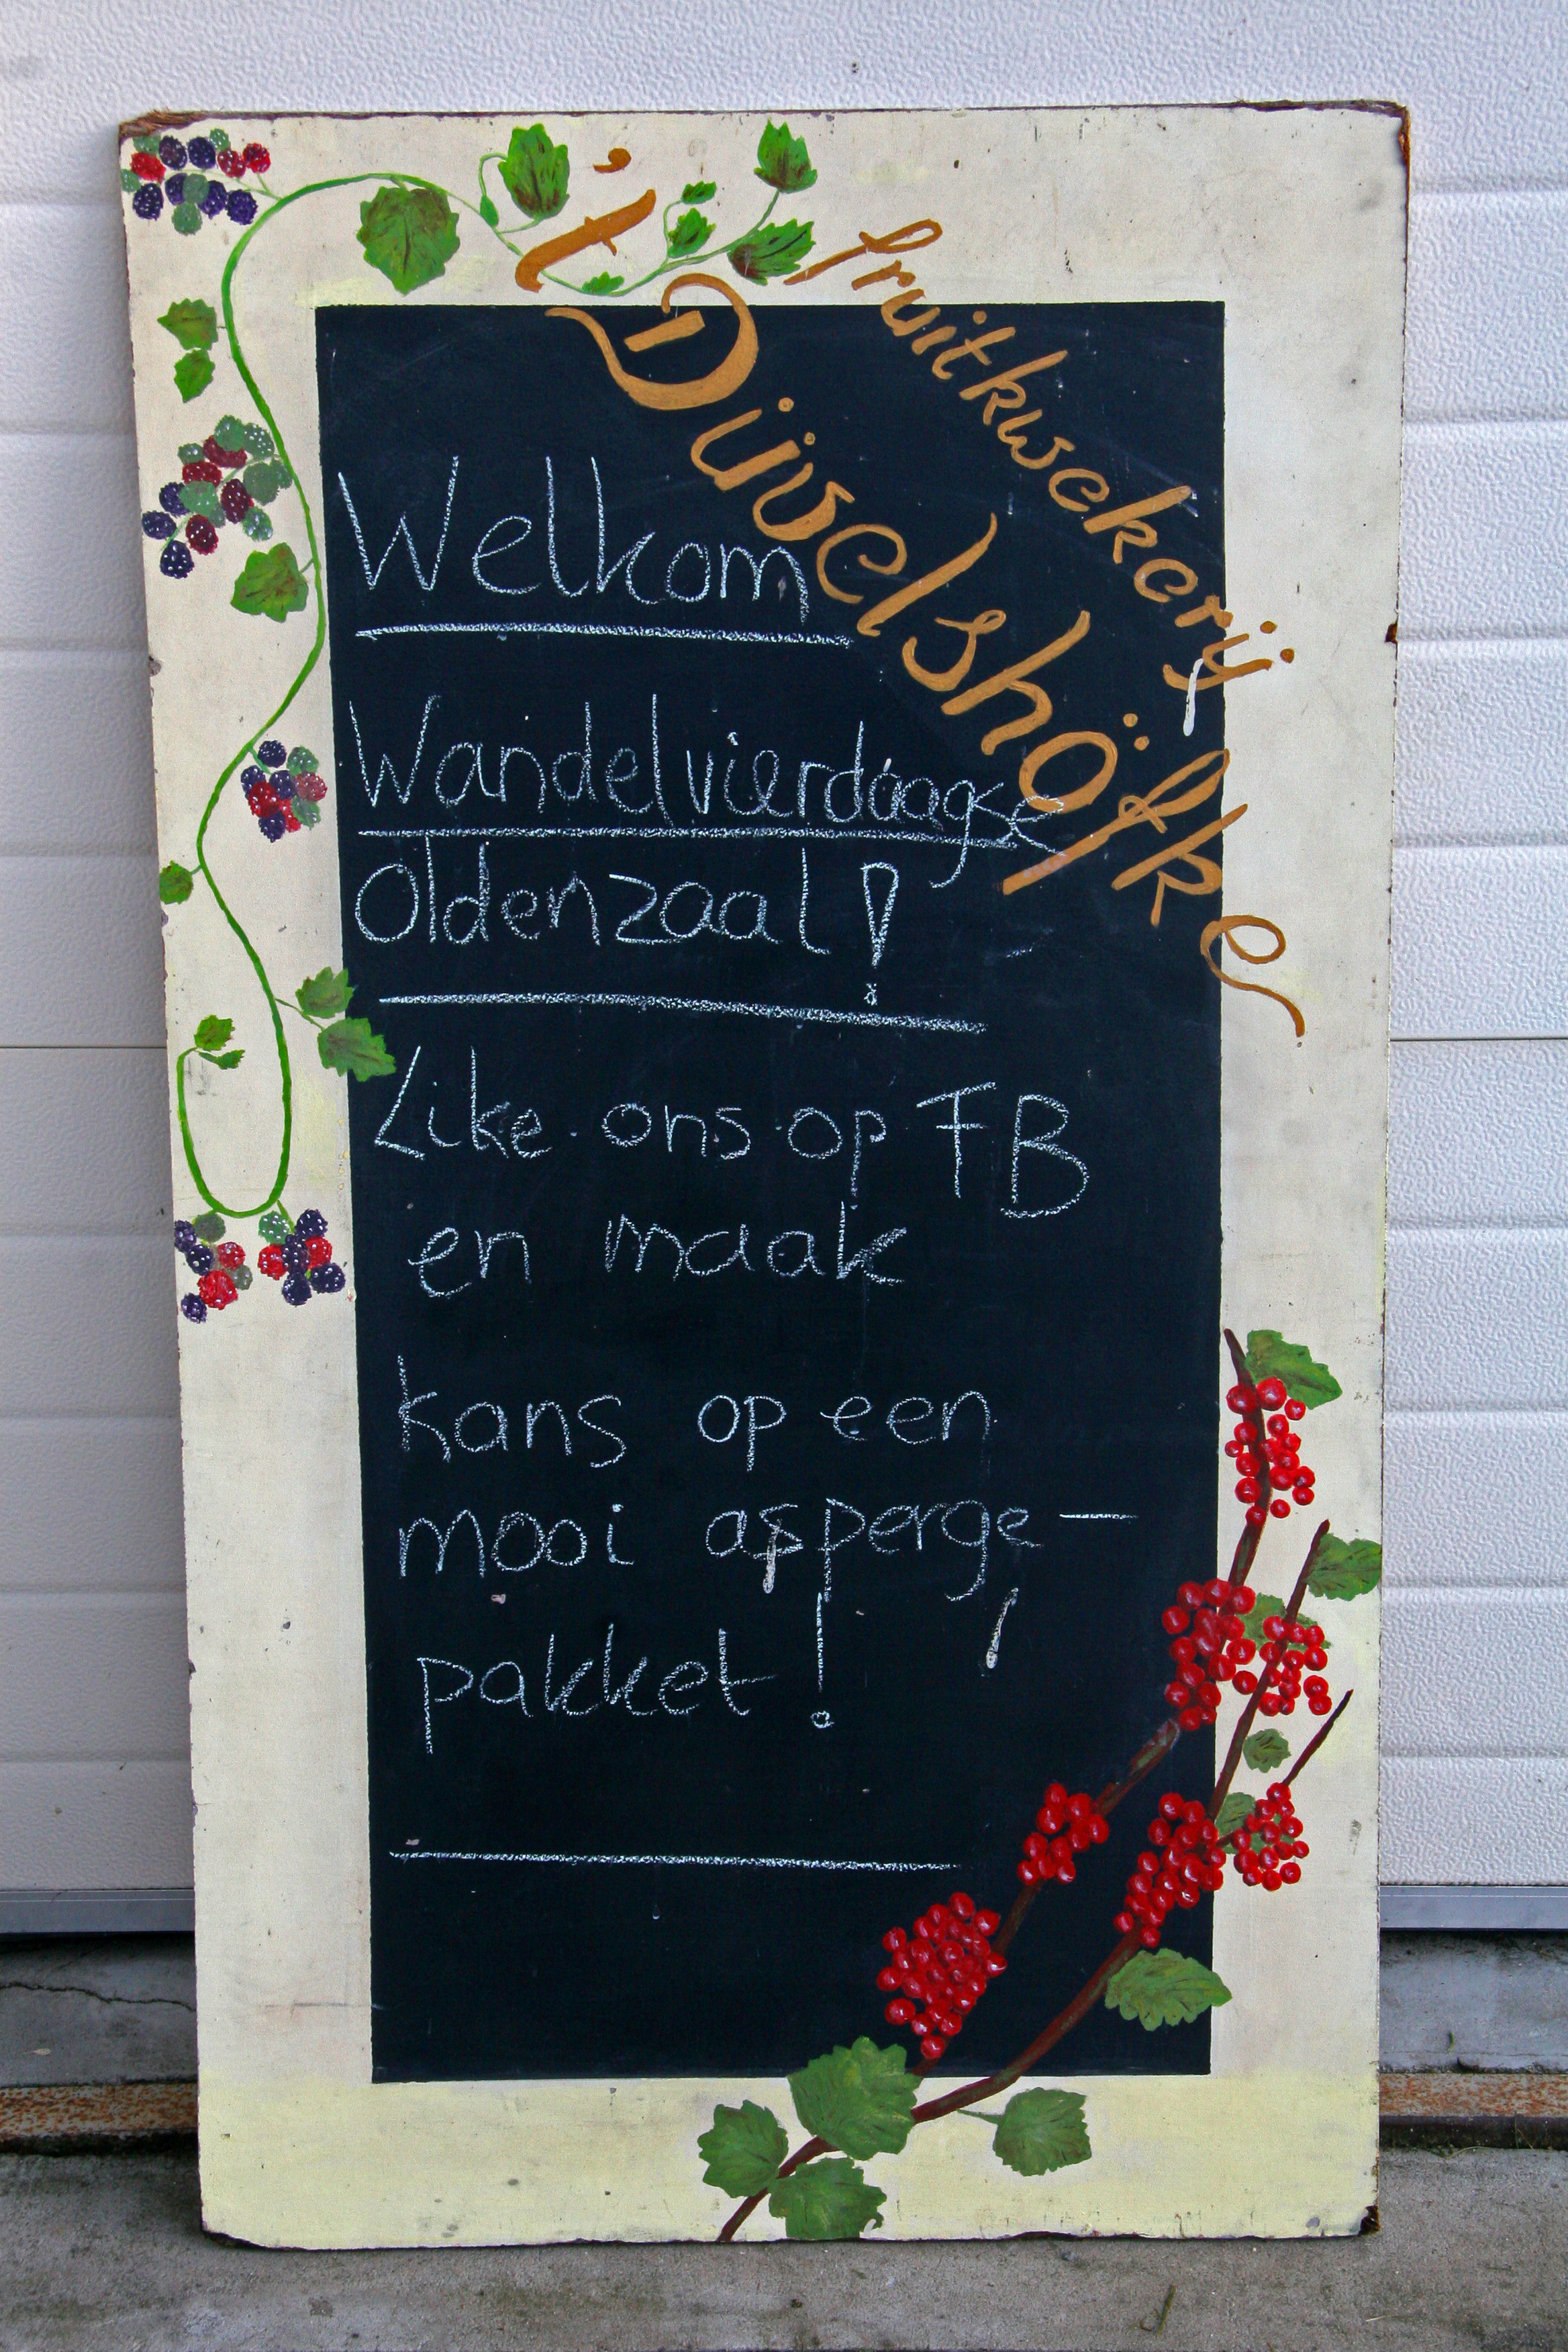 't Düvelshöfke
fruitkwekerij
Welkom
Wandelvierdaagse
Oldenzaal!
Like ons op FB
en maak
kans op een
mooi asperge-
pakket!